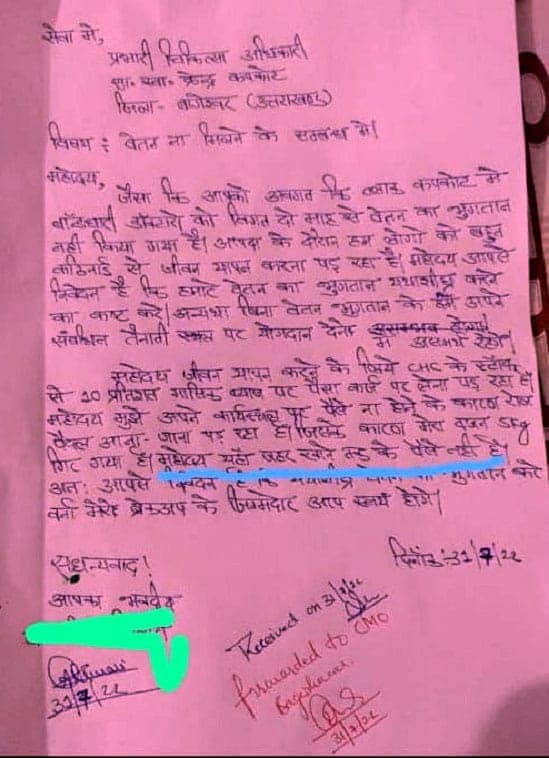 सेवा में,
प्रभारी चिकित्सा अधिकारी
सा० स्वा० केन्द्र कपकोट
जिला- बागेश्वर (उत्तराखण्ड)
विषय : वेतन ना मिलने के सम्बन्ध में।
महोदय,
जैसा कि आपको अवगत कि ब्लाक कपकोट में
बॉन्डधारी डॉक्टरों को विगत दो माह से वेतन का भुगतान
नहीं किया गया है। आपदा के दौरान हम लोगों को बहुत
कठिनाई से जीवन यापन करना पड़ रहा है। महोदय आपसे
निवेदन है कि हमारे वेतन का भुगतान यथाशीघ्र करने
का कष्ट करें। अन्यथा बिना वेतन भुगतान के हम अपने
संबंधित तैनाती स्थल पर योगदान देना
में असमर्थ रहेंगे।
महोदय जीवन यापन करने के लिये CHC के स्टॉफ
से 10 प्रतिशत मासिक ब्याज पर पैसा कर्ज पर लेना पड़ रहा है।
महोदय मुझे अपने कार्यस्थल पर पैसे ना होने के कारण रोज
पैदल आना-जाना पड़ रहा है। जिसके कारण मेरा वजन 5kg
गिर गया है। महोदय यहां जहर खाने तक के पैसे नहीं है
अतः आपसे निवेदन है कि यथाशीघ्र वेतन का भुगतान करे
वर्ना मेरे ब्रेकअप के जिम्मेदार आप स्वयं होंगे।
सधन्यवाद!
दिनांक:31/7/22
आपका भवदीय
31/7/22
Received on 31/7/22
forwarded to CMO
Bageshwar
31/7/22